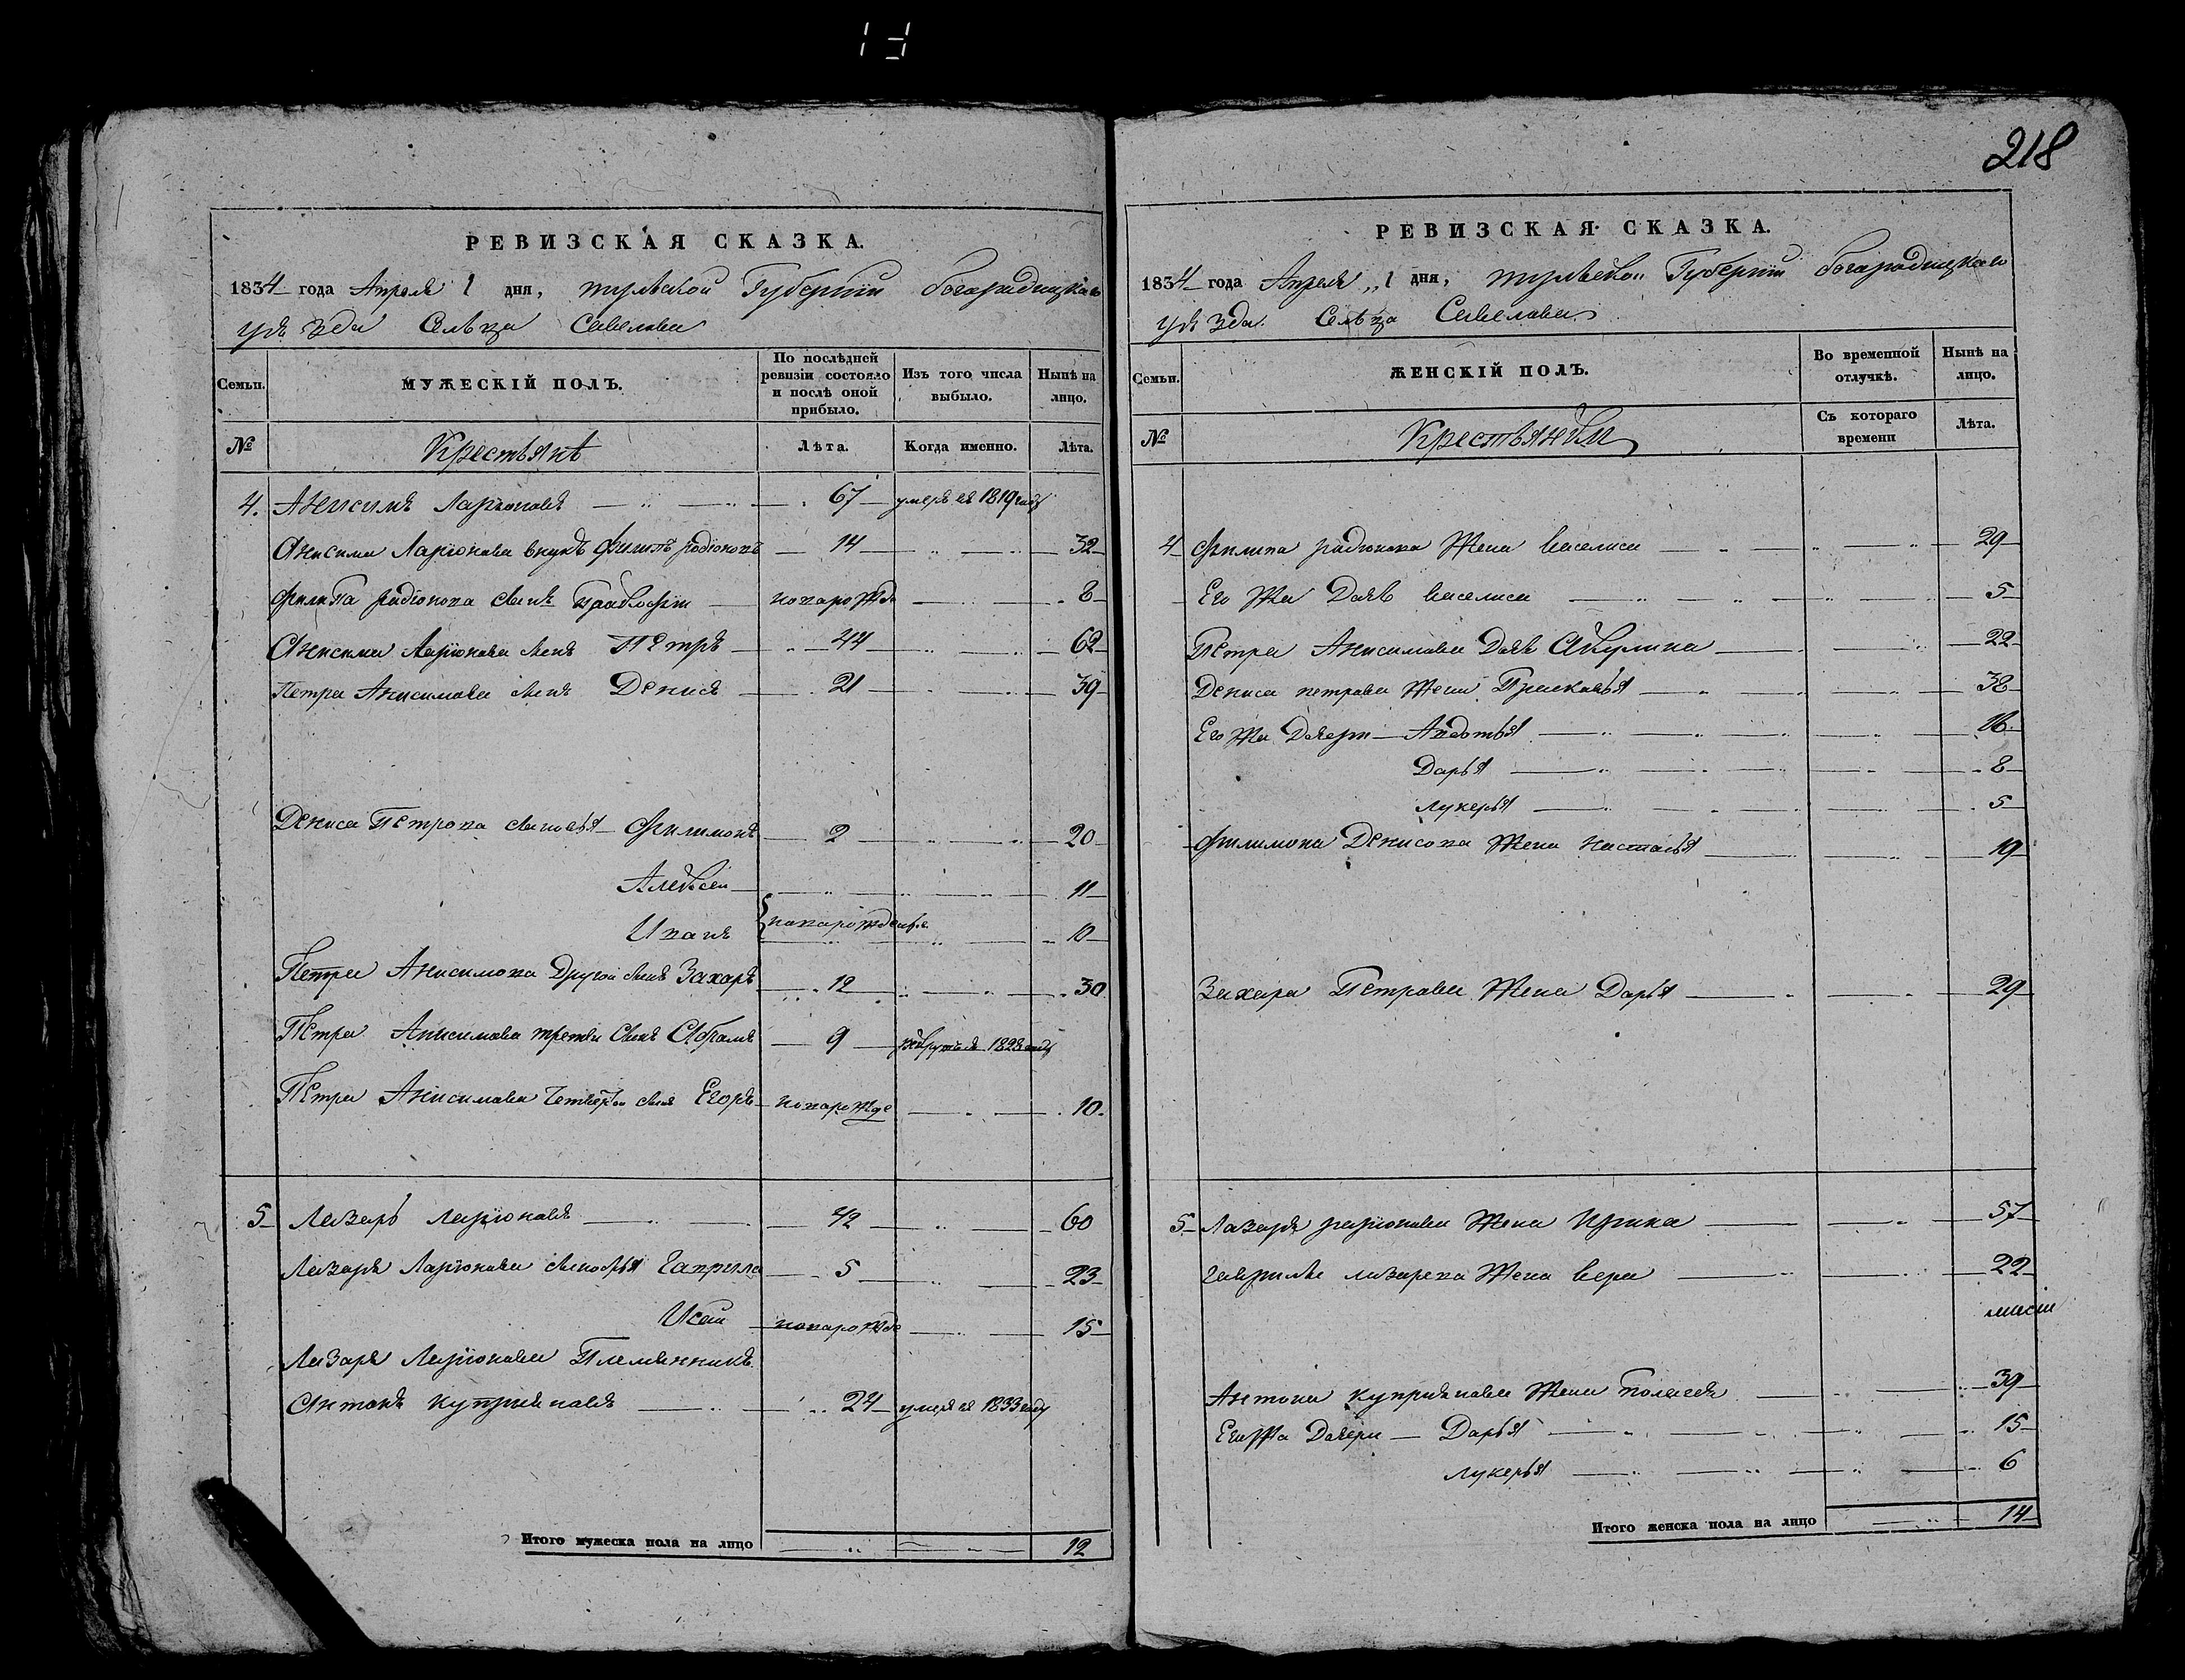 218
РЕВИЗСКАЯ СКАЗКА.
1834 года Апреля 1 дня, тульской Губернии богародицкаго
уѣзда Селца Савелова
Семьи. МУЖЕСКІЙ ПОЛЪ. По послѣдней ревизіи состояло и послѣ оной прибыло. Изъ того числа выбыло. Нынѣ на лицо.
№ Крестьянѣ Лѣта. Когда именно. Лѣта.
4. Анисимъ Ларионавъ 67 умеръ въ 1819 году
Анисима Лариюнава внукъ Филипъ родионовъ 14 32
Филипа радионова сынъ 8
Анисима Лариюнава сынъ Петръ 44 62
Петра Анисимава сынъ Денисъ 21 39
Дениса Петрова сыновья Филимонъ 2 20
Алексеи 11
Иванъ новарожденыя 10
Петра Анисимова Другои сынъ Захаръ 12 30
Петра Анисимава третеи сынъ Абрамъ 9 1828 году
Петра Анисимава Четвертои сынъ Егоръ новарожде 10.
5 Лазарь Лариюнавъ 42 60
Лазаря Лариюнава сыновья Гаврила 5 23
Исаи новарожде 15
Лазаря Лариюнава Племянникъ
Антонъ куприяновъ 24 умеръ въ 1833 году
Итого мужеска пола на лицо 12
РЕВИЗСКАЯ СКАЗКА.
1834 года Апреля 1 дня, тульской Губернии богародицкаго
уѣзда Селца Савелава
Семьи. ЖЕНСКІЙ ПОЛЪ. Во временной отлучкѣ. Нынѣ на лицо.
№ Крестьянки Съ котораго времени Лѣта.
4 Филипа радионова Жена Василиса 29
Его Жа Дочь Василиса 5
Петра Анисимава Дочь Акулина 22
Дениса петрава Жена Прасковья 38
Его Жа Дочери Авдотья 16
Дарья 8
Лукерья 5
Филимона Денисова Жена Настасья 19
Захара Петрава Жена Дарья 29
5 Лазаря Жена Ирина 57
Гаврилы лазарева Жена Вера 22
Антона куприянава Жена 39
Его Жа Дочери Дарья 15
Лукерья 6
Итого женска пола на лицо 14